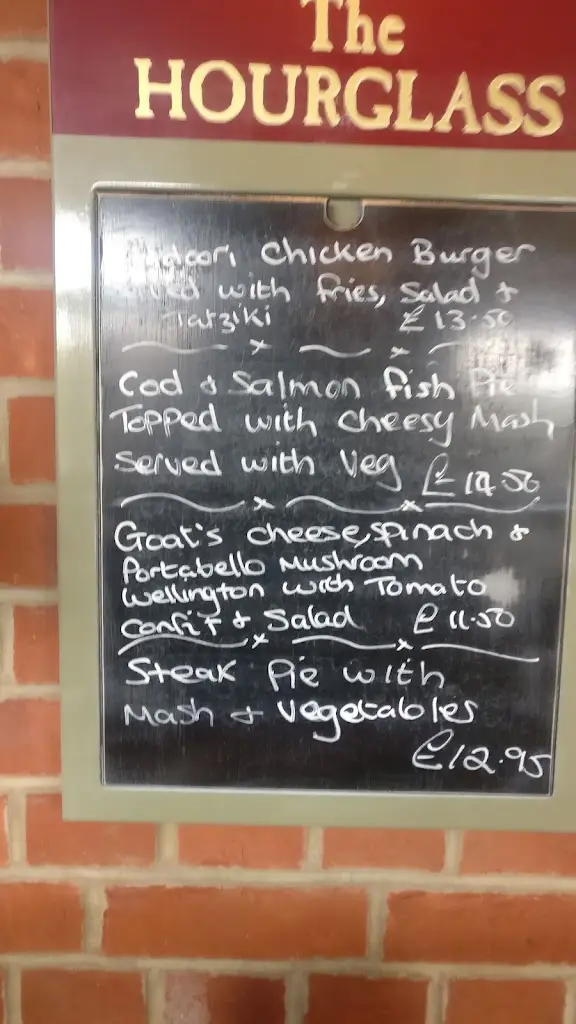 The
HOURGLASS
Chicken Burger
with fries, Salad &
Tatziki £13.50
Cod & Salmon fish Pie
Topped with cheesy Mash
Served with Veg £14.50
Goat's cheese, spinach &
Portabello Mushroom
Wellington with Tomato
Confit & Salad £11.50
Steak Pie with
Mash & Vegetables
£12.95